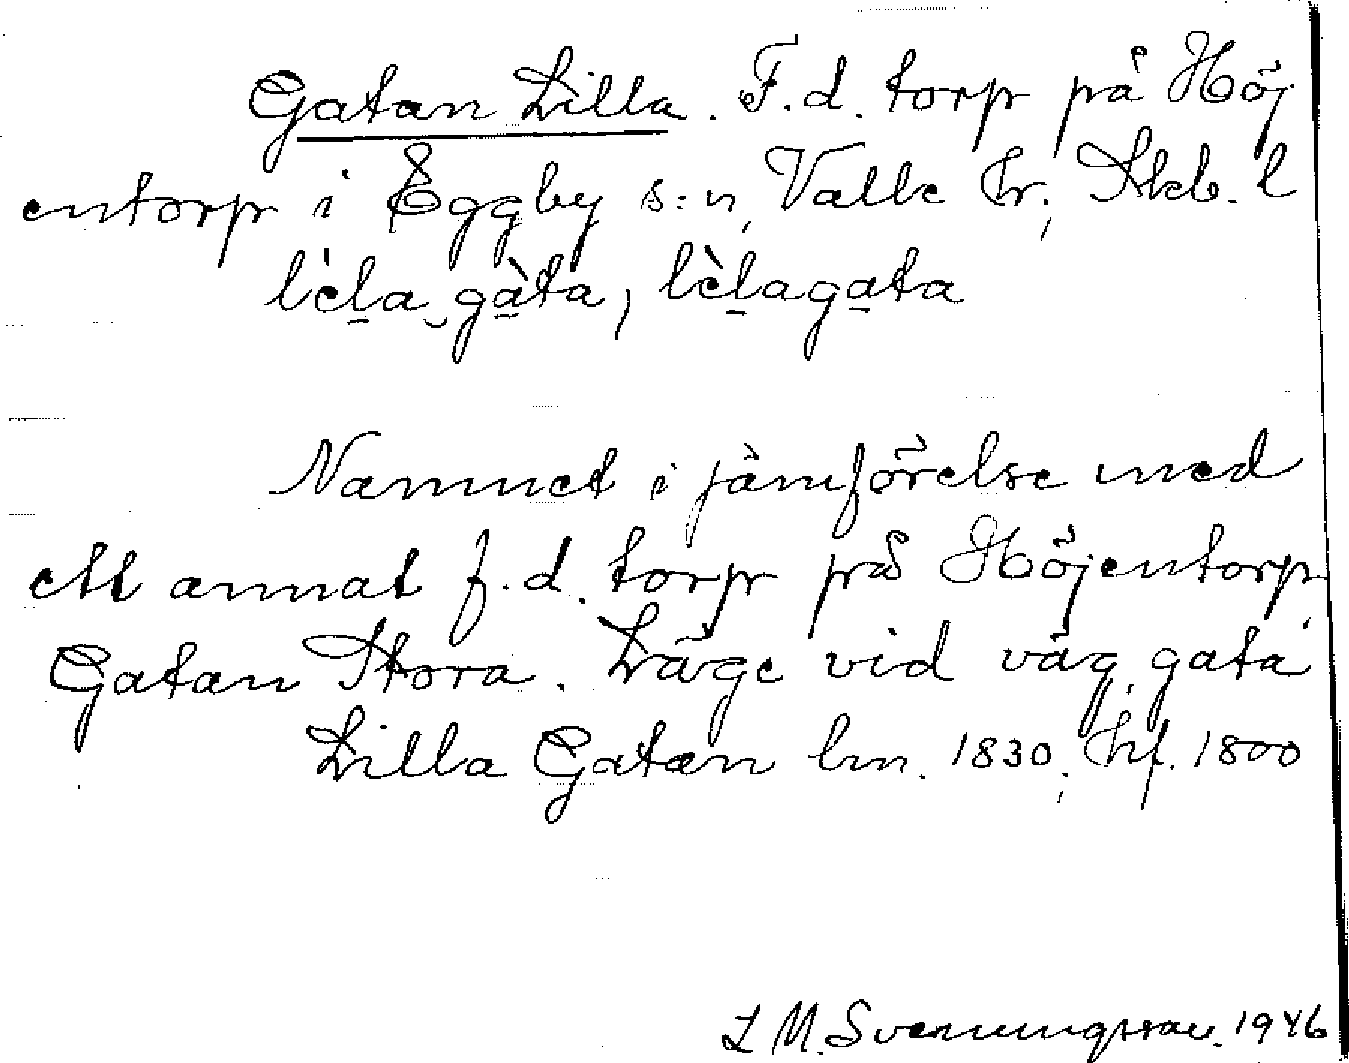 Gatan Lilla. F.d. torp på Höj
entorp i Eggby s:n, Valle hr; Skb. l
lèla gàta, lèlagata
Namnet i jämförelse med
ett annat f.d. torp på Höjentorp,
Gatan Stora. Läge vid väg, gata
Lilla Gatan lm. 1830; hf. 1800
L M. Svenungsson. 1946